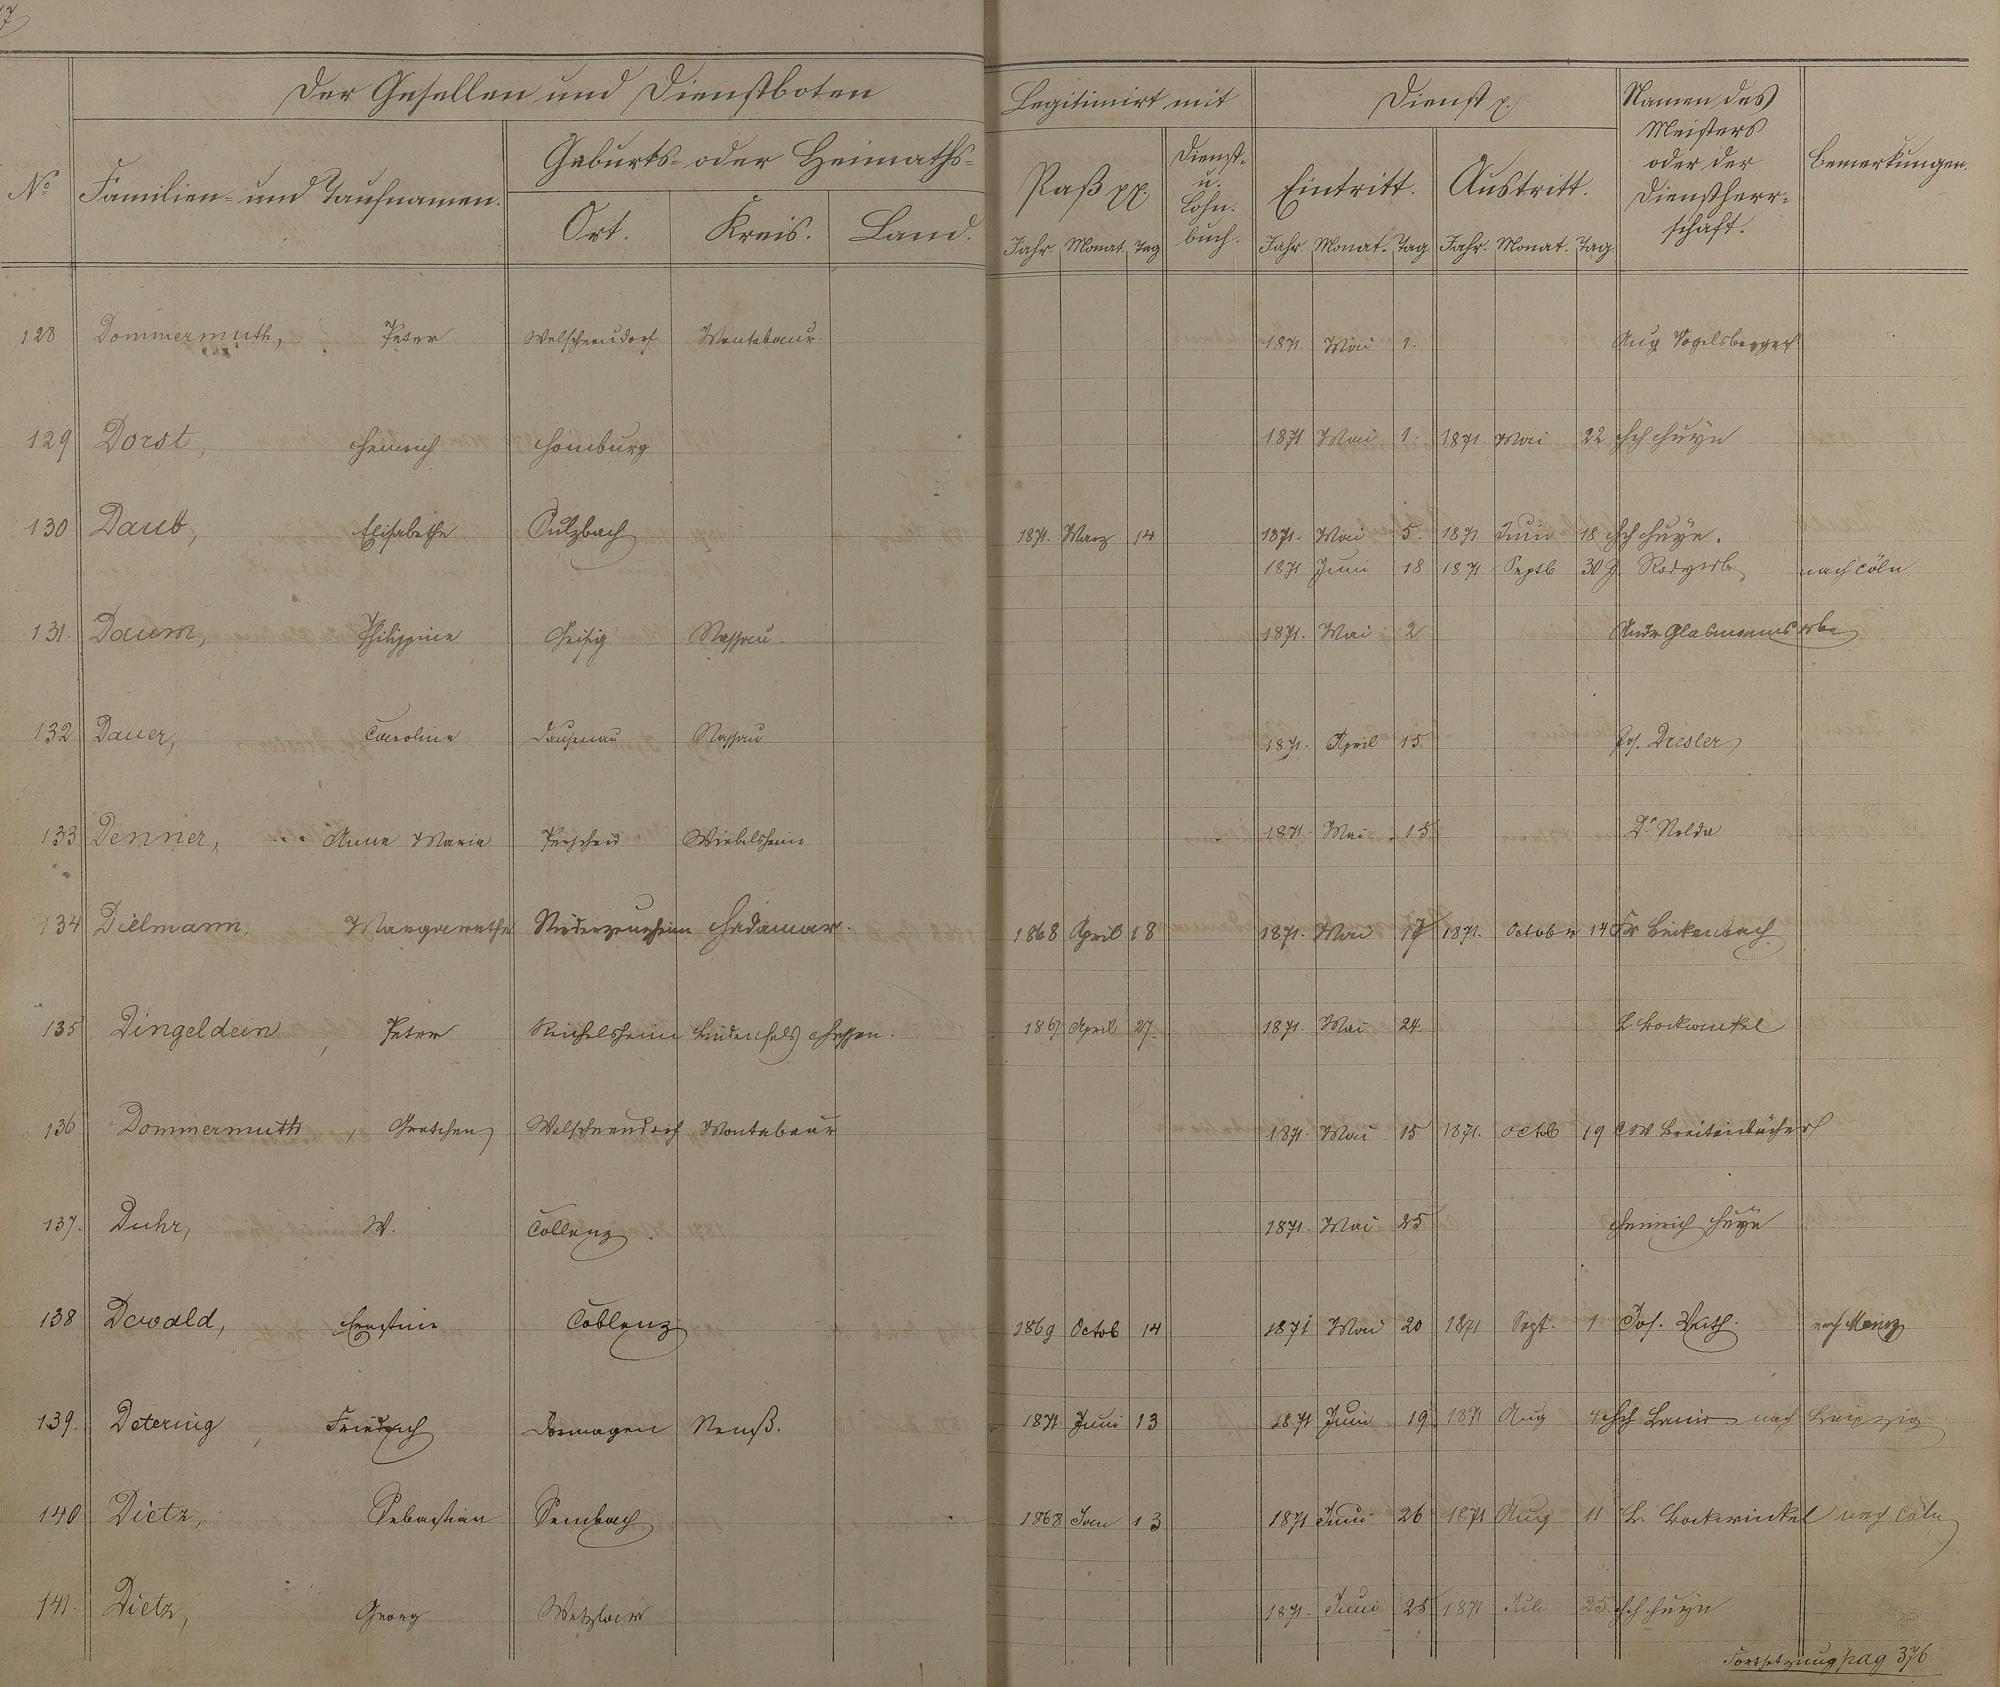 7
Der Gesellen und Dienstboten
Legitimirt mit
Dienst p.
Namen des
Meisters
oder der
Dienstherr-
schaft.
Bemerkungen.
No
Familien- und Taufnamen.
Geburts- oder Heimaths-
Ort. Kreis. Land.
Paß pp.
Dienst-
u.
Lohn-
buch.
Eintritt. Austritt.
Jahr. Monat. Tag Jahr Monat. Tag Jahr. Monat. Tag.
128 Dommermuth, Peter Welschneudorf Montabaur. 1871. Mai 1. Aug Vogelsberger
129 Dorst, Heinrich Homburg 1871 Mai 1. 1871. Mai 22 Hch Huyn
130 Daub, Elisabetha Sulzbach 1871. Marz 14 1871. Mai 5. 1871 Juni 18 Hch Huyn.
1871 Juni 18 1871 Septb 30 J. nach Cöln
131. Daum, Philippine Geisig Nassau. 1871. Mai 2 Andr Glasmanns Erbe
132 Dauer, Caroline Dausenau Nassau 1871. April 15 Jos. Dresler
133 Denner, Anna Maria Perscheid Wiebelsheim 1871. Mai 15 Dr Nolda
134 Dielmann, Margarethe Niederzeuzheim Hadamar. 1868 April 18 1871. Mai 17 1871. October 14 Fr
135 Dingeldein, Peter Reichelsheim Lindenfels Hessen. 1867 April 27. 1871. Mai 24. L. Bockwinkel
136 Dommermuth, Gretchen Welschneudorf Montabaur 1871. Mai 15 1871. Octob 19 CW Breitenbücher
137. Duhr, W. Coblenz. 1871. Mai 25 Heinrich Huyn
138 Dewald, Ernstine Coblenz 1869 Octob 14 1871 Mai 20 1871 Sept. 1 Jos. Rath. nach Mainz
139. Detering, Friedrich Dormagen Neuß. 1871 Juni 13 1871 Juni 19. 1871 Aug 4 Hch nach Leipzig
140 Dietz, Sebastian Sembach 1868 Jan 13 1871 Juni 26 1871 Aug 11 L. Bockwinkel nach Cöln
141. Dietz, Georg Wetzlar 1871. Juni 25 1871 Juli 25. Hch Huyn
Fortsetzung pag 376